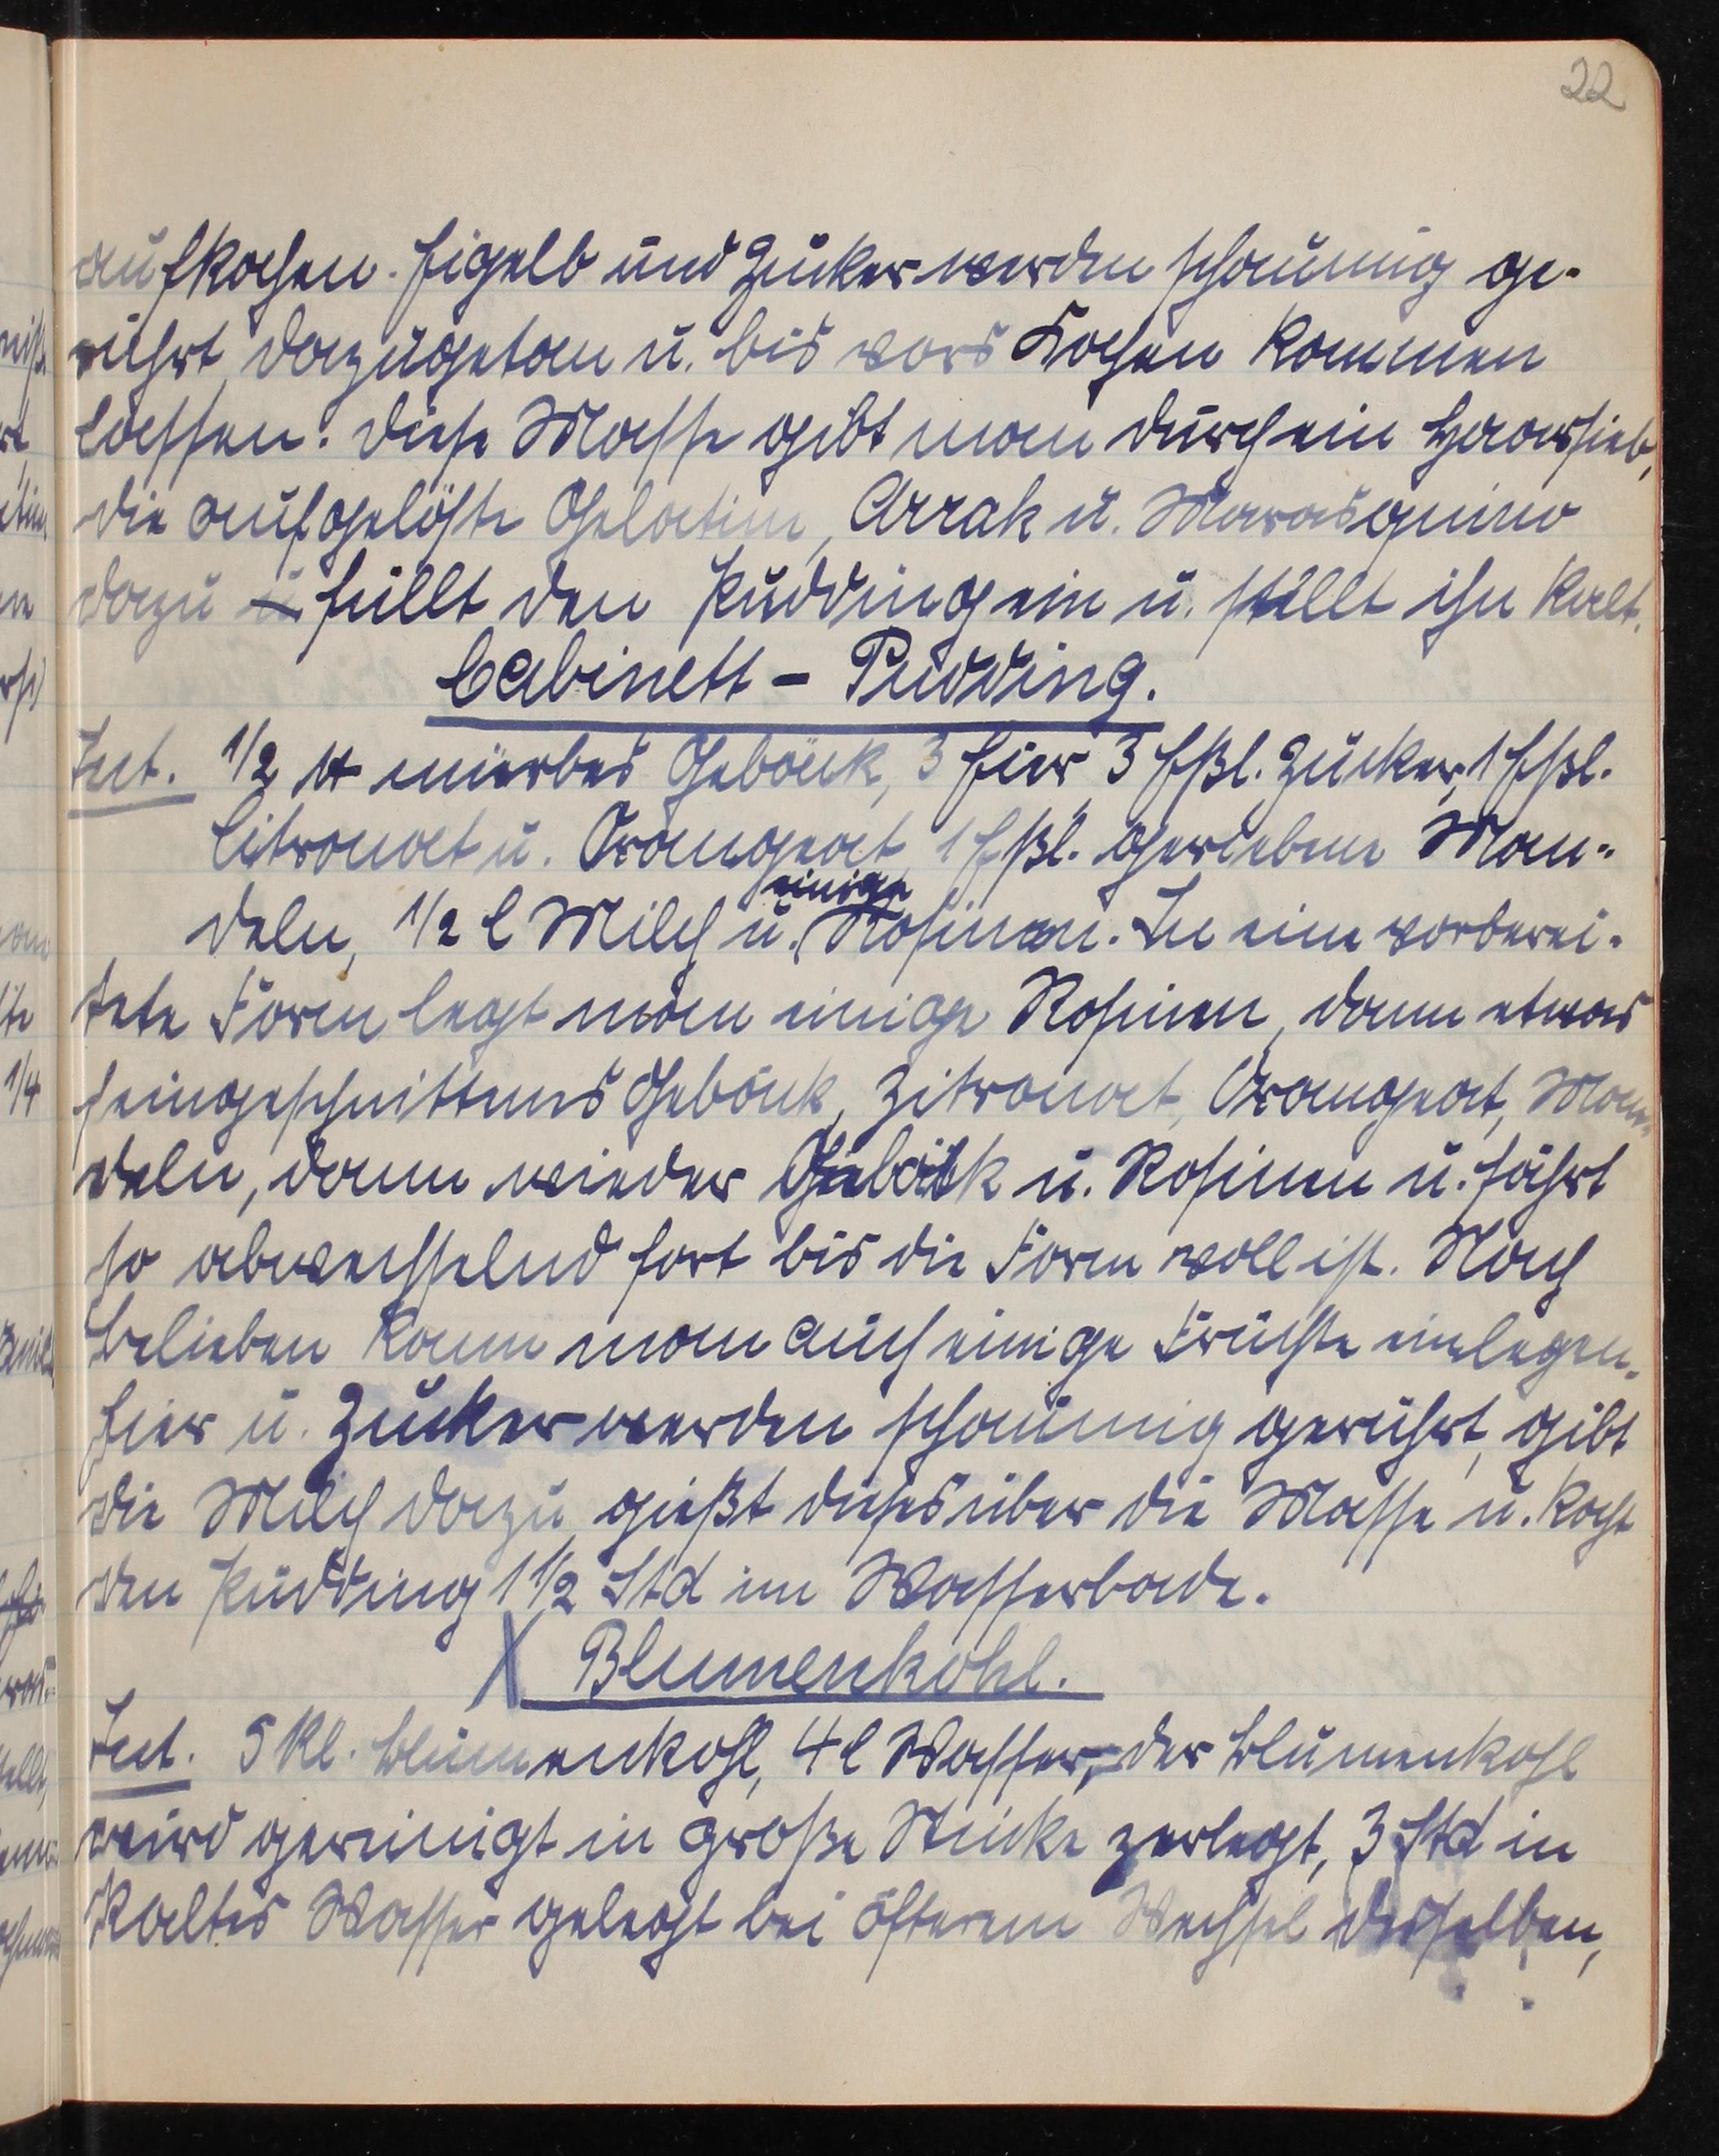 22
aufkochen. Eigelb und Zucker werden schaumig ge-
rührt, dazugetan u. bis vors Kochen kommen
lassen. Diese Masse gibt man durch ein Haarsieb,
die aufgelöste Gelatine, Arrak u. Marasquino
dazu u füllt den Pudding ein u. stellt ihn kalt.
Cabinett - Pudding.
Zut. 1/2 ℔ mürbes Gebäck, 3 Eier 3 Eßl. Zucker, 1 Eßl.
Citronat u. Orangeat, 1 Eßl. geriebene Man-
einige
deln, 1/2 l Milch u. Rosinen. In eine vorberei-
tete Form legt man einige Rosinen, dann etwas
feingeschnittenes Gebäck, Zitronat, Orangeat, Man-
deln, dann wieder Gebäck u. Rosinen u. fährt
so abwechselnd fort bis die Form voll ist. Nach
belieben kann man auch einige Früchte einlegen.
Eier u. Zucker werden schaumig gerührt, gibt
die Milch dazu, gießt dieses über die Masse u. kocht
den Pudding 1 1/2 Std im Wasserbade.
X Blumenkohl.
Zut. 5 Kl. Blumenkohl, 4 l Wasser, der Blumenkohl
wird gereinigt in große Stücke zerlegt, 3 Std in
kaltes Wasser gelegt bei öfterem Wechsel desselben,